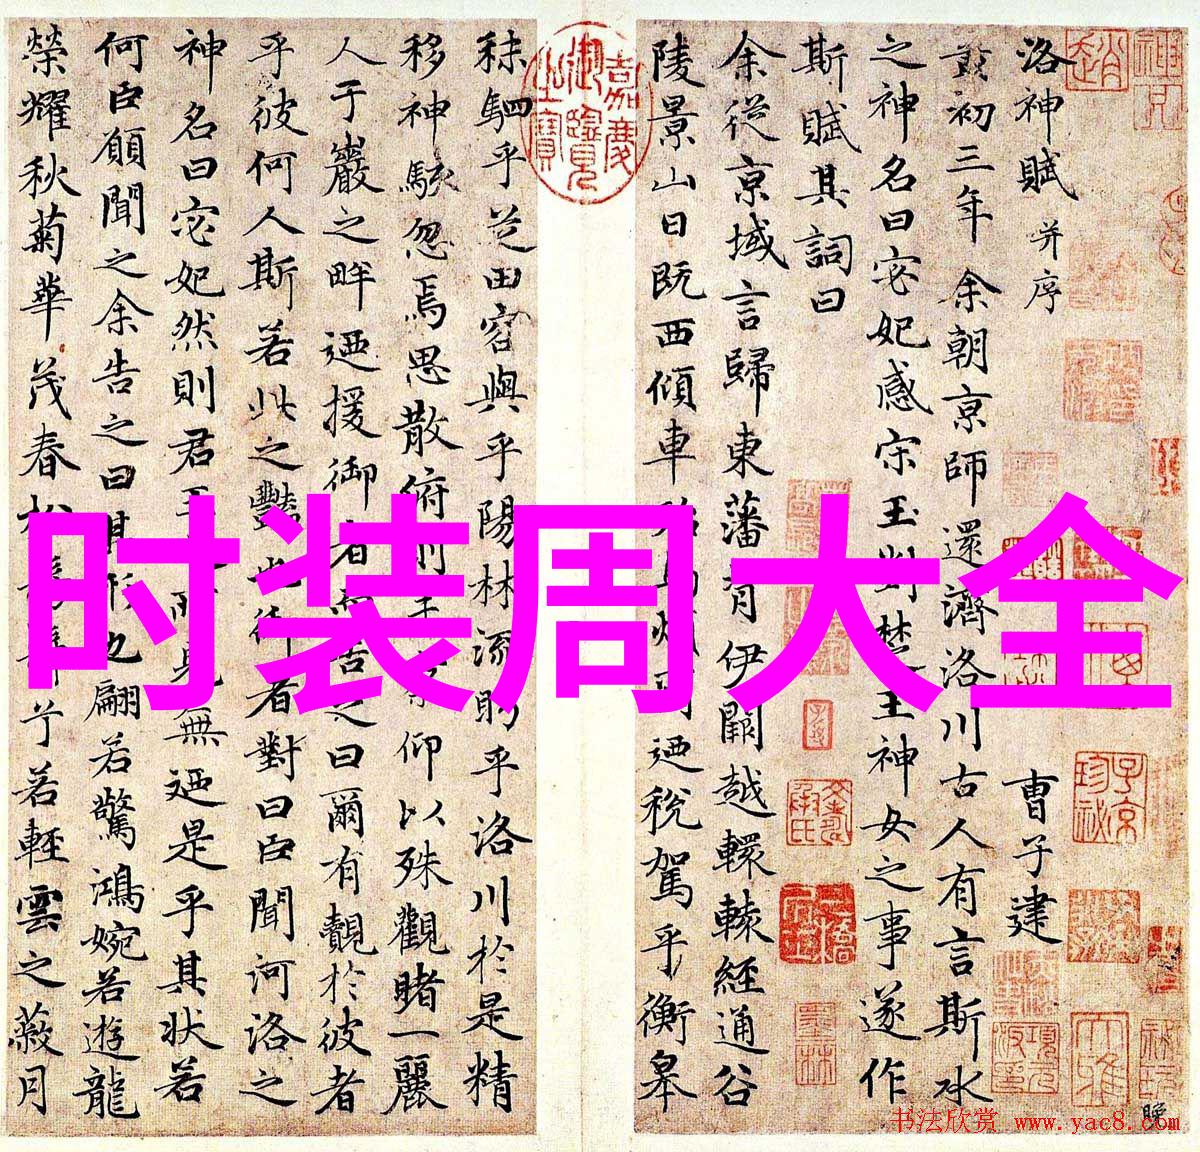 洛神賦 并序
曹子建
黄初三年余朝京師還濟洛川古人有言斯水
之神名曰宓妃感宋玉對楚王神女之事遂作
斯賦其詞曰
余從京域言歸東藩背伊闕越轘轅經通谷
陵景山日既西傾車殆馬煩爾迺稅駕乎蘅皋
秣駟乎芝田容與乎陽林流眄乎洛川於是精
移神駭忽焉思散俯則未察仰以殊觀睹一麗
人于巖之畔迺援御者而告之曰爾有覿於彼者
乎彼何人斯若此之豔也御者對曰臣聞河洛之
神名曰宓妃然則君王所見無迺是乎其狀若
何臣願聞之余告之曰其形也翩若驚鴻婉若遊龍
榮耀秋菊華茂春松
兮若輕雲之蔽月
嘉慶御覽之寶
晚
时装周大全
书法欣赏 www.yac8.com